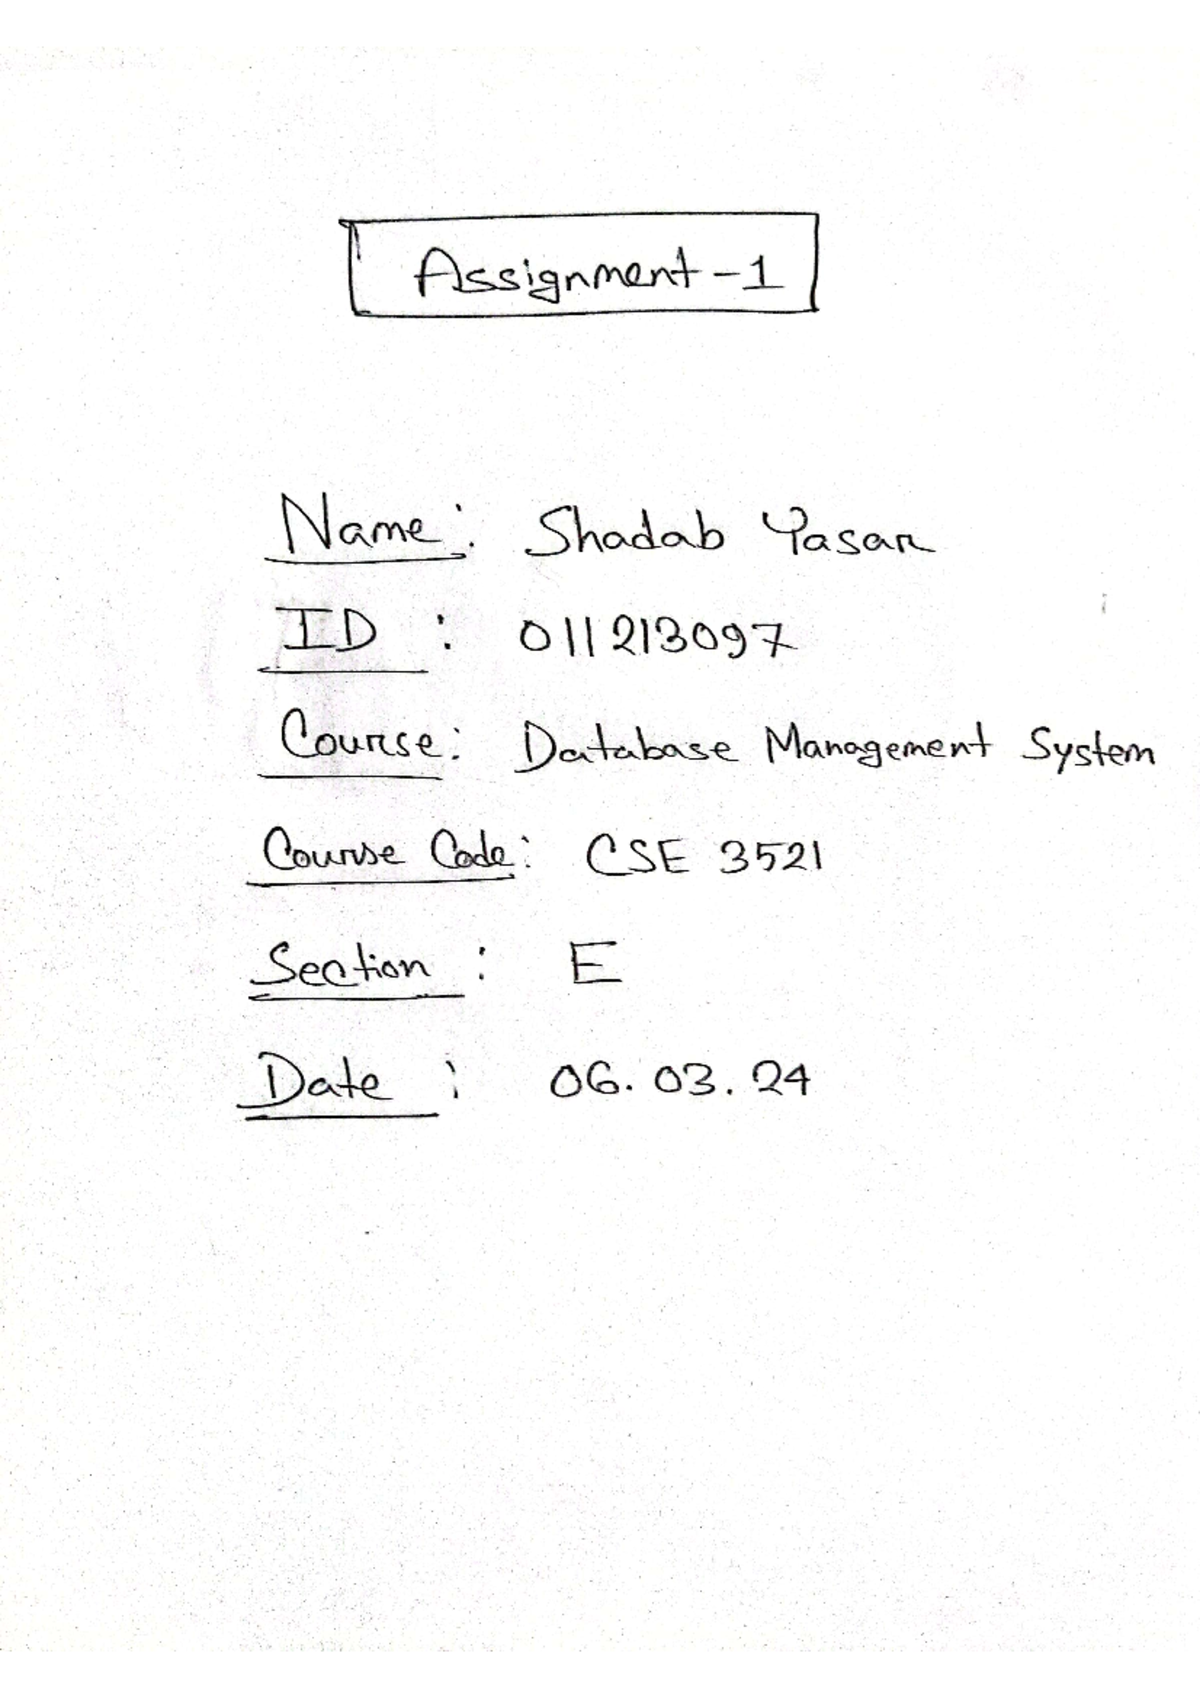 Assignment-1
Name: Shadab Yasar
ID : 011213097
Course: Database Management System
Course Code: CSE 3521
Section : E
Date : 06.03.24